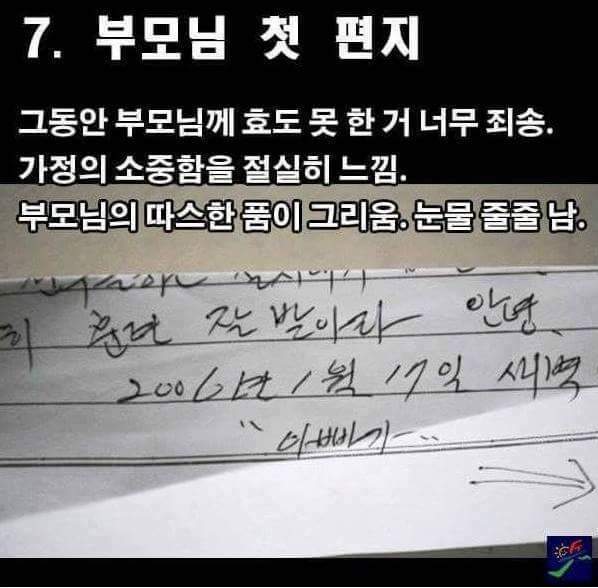 7. 부모님 첫 편지
그동안 부모님께 효도 못 한 거 너무 죄송.
가정의 소중함을 절실히 느낌.
부모님의 따스한 품이 그리움. 눈물 줄줄 남.
히 훈련 잘 받아라 안녕.
2006년 1월 17일 새벽
"아빠가"